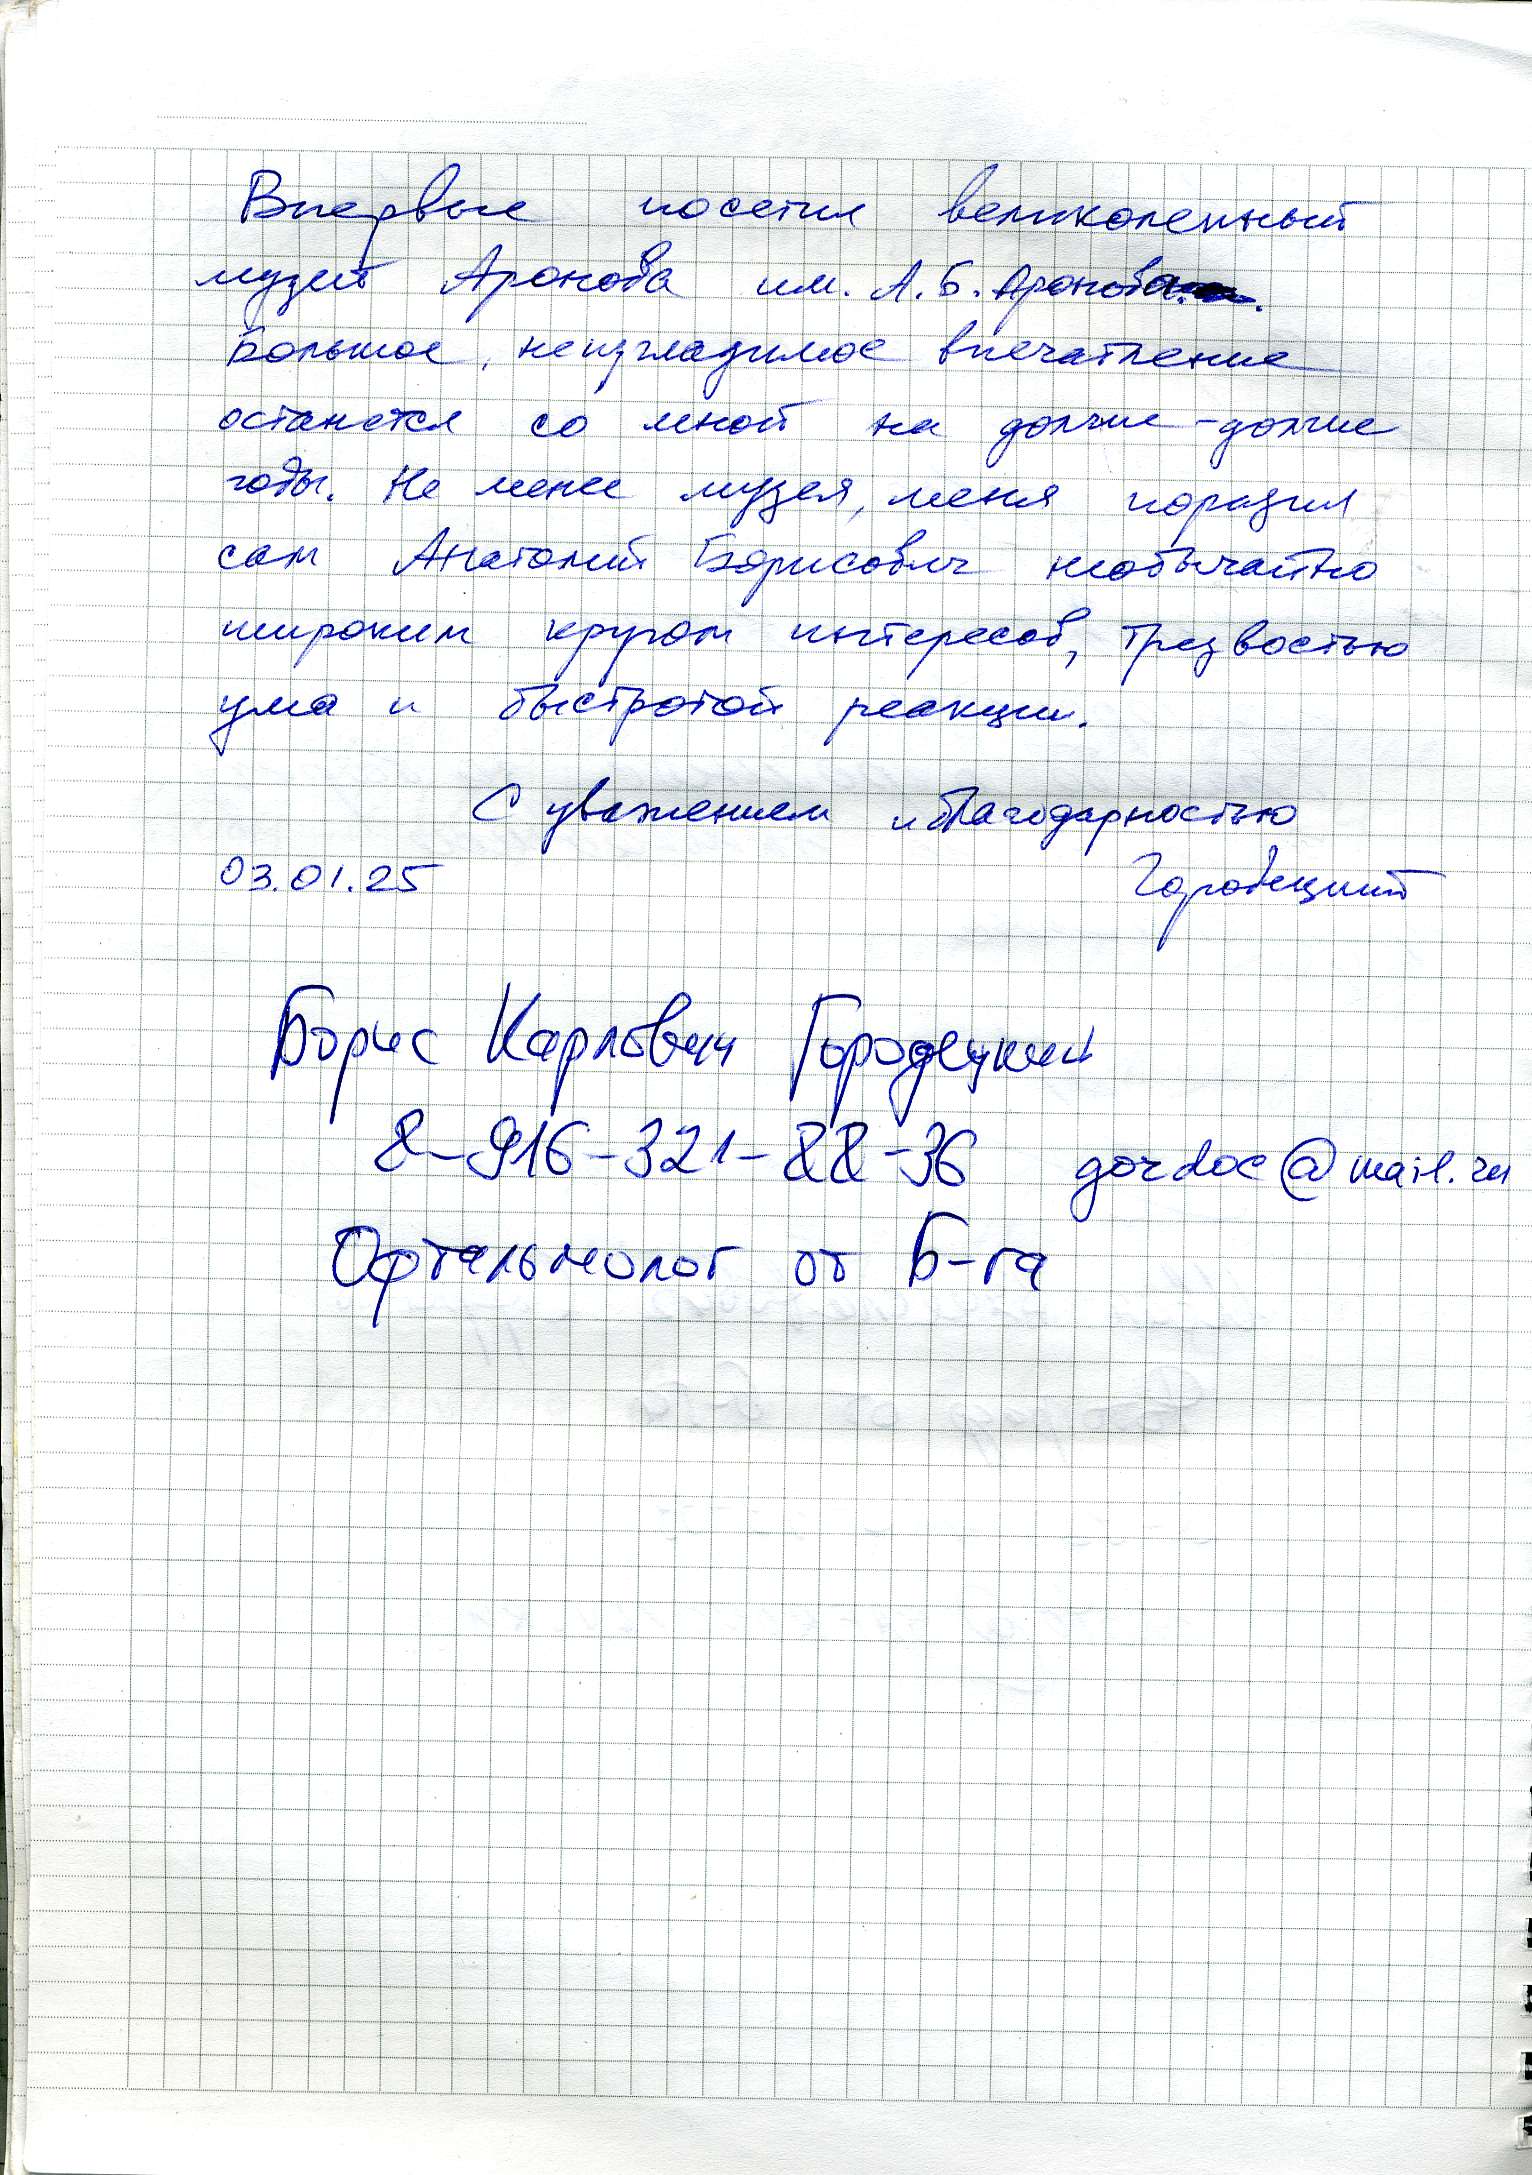 Впервые посетил великолепный
музей Аронова им. А. Б. Аронова.
Большое, неизгладимое впечатление
останется со мной на долгие-долгие
годы. Не менее музея, меня поразил
сам Анатолий Борисович необычайно
широким кругом интересов, трезвостью
ума и быстротой реакции.
С уважением и благодарностью
03.01.25 Городецкий
Борис Карлович Городецкий
8-916-321-88-36 gordoc@mail.ru
Офтальмолог от Б-га